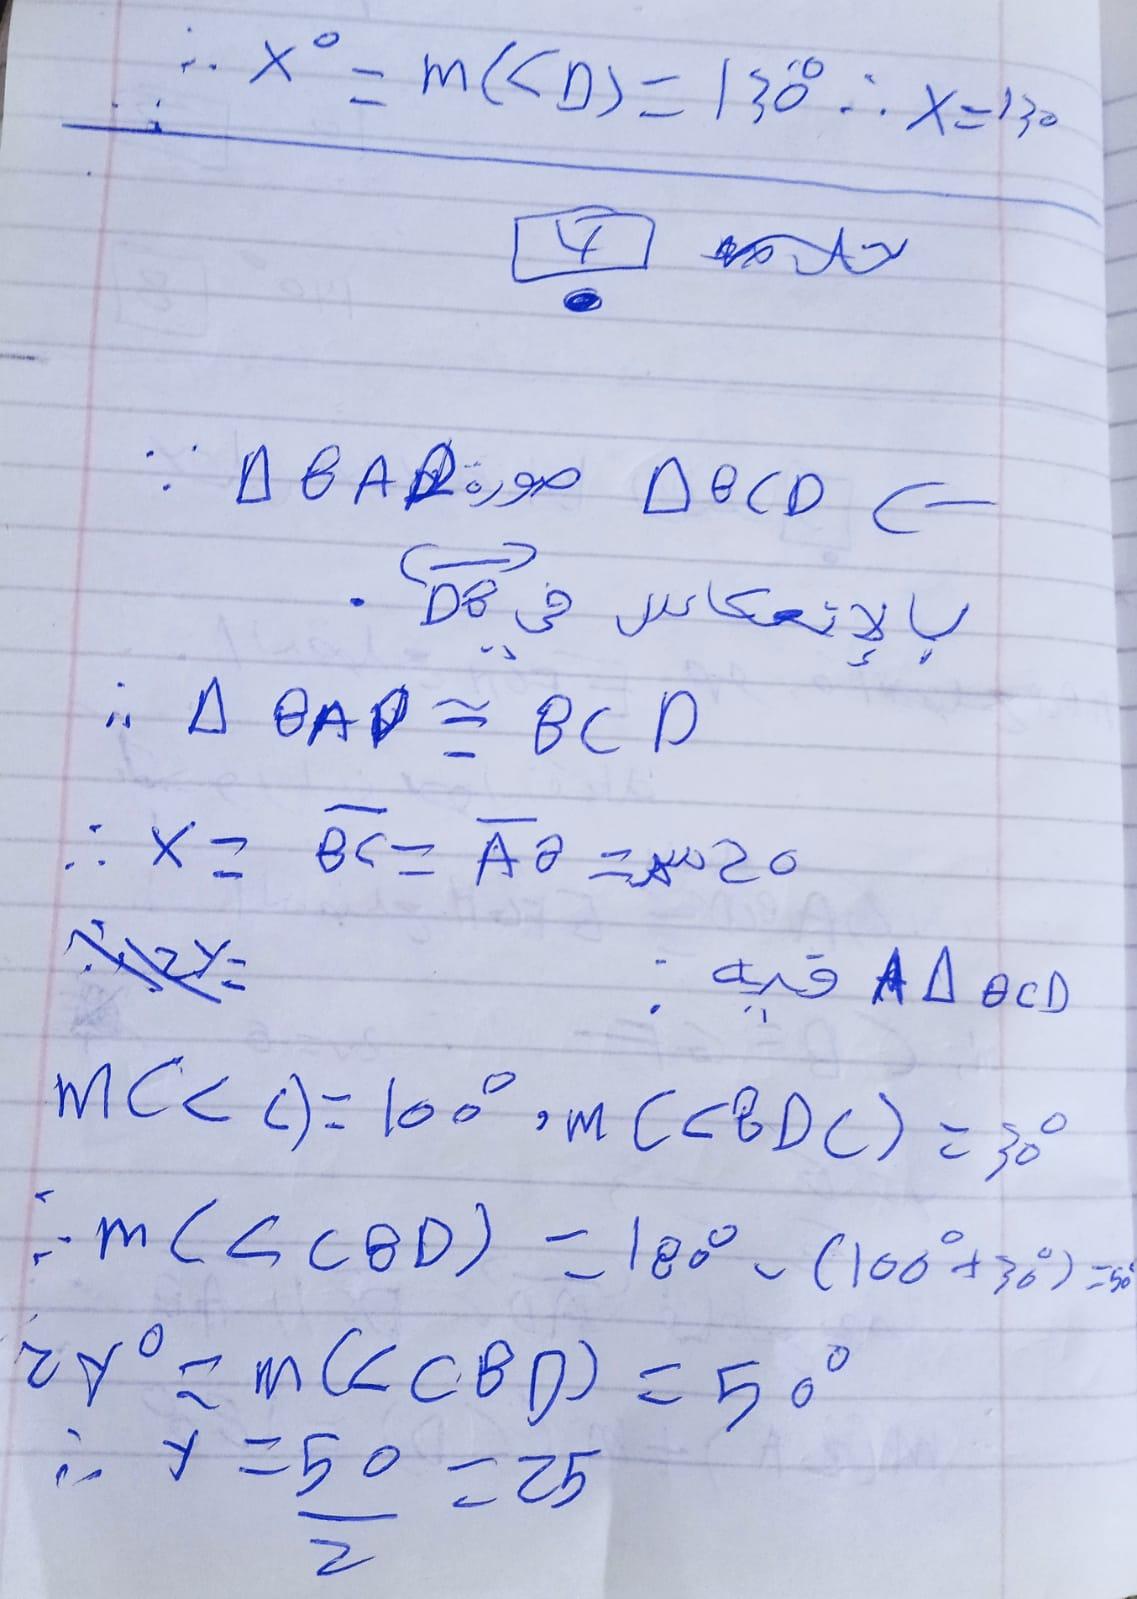 ∴ X° = m(<D) = 130° ∴ X=130
4
∵ Δ BAD صورة Δ BCD ←
بالإنعكاس في DB .
∴ Δ BAD ≅ BCD
∴ X = BC = AB = 20
Δ BCD فيه :
m(< C) = 100° , m(<BDC) = 30°
∴ m(<CBD) = 180° - (100°+30°) = 50°
2y° = m(<CBD) = 50°
∴ y = 50/2 = 25